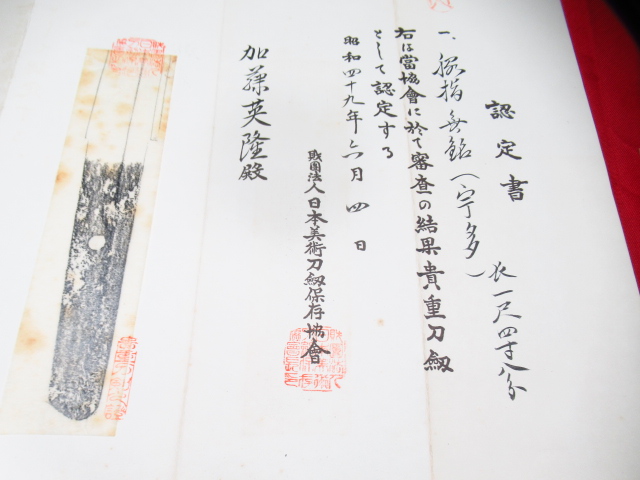 認定書
一、脇指 無銘(宇多)
長一尺四寸八分
右は當協會に於て審査の結果貴重刀劔
として認定する
昭和四十九年六月四日
財團法人日本美術刀劔保存協會
加藤英隆殿